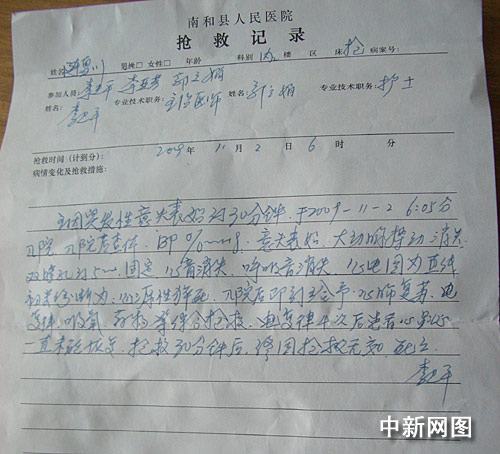 南和县人民医院
抢救记录
姓名 男性□ 女性□ 年龄 科别 内 楼 区 床 抢 病案号:
参加人员: 李卫平
姓名: 李卫平 专业技术职务: 主治医师 姓名: 专业技术职务: 护士
抢救时间（计到分）: 2009 年 11 月 2 日 6 时 分
病情变化及抢救措施:
主因突发性意识丧失约30分钟,于2009-11-2 6:05分
入院 入院后查体: BP 0/0mmHg, 意识丧失, 大动脉搏动消失
双瞳孔约5mm, 固定, 心音消失, 呼吸音消失, 心电图为直线
初步诊断为: 心源性猝死, 入院后即刻给予心肺复苏, 电
复律, 吸氧, 药物等综合抢救, 电复律4次后患者心电
一直未能恢复, 抢救30分钟后, 终因抢救无效 死亡.
李卫平
中新网图